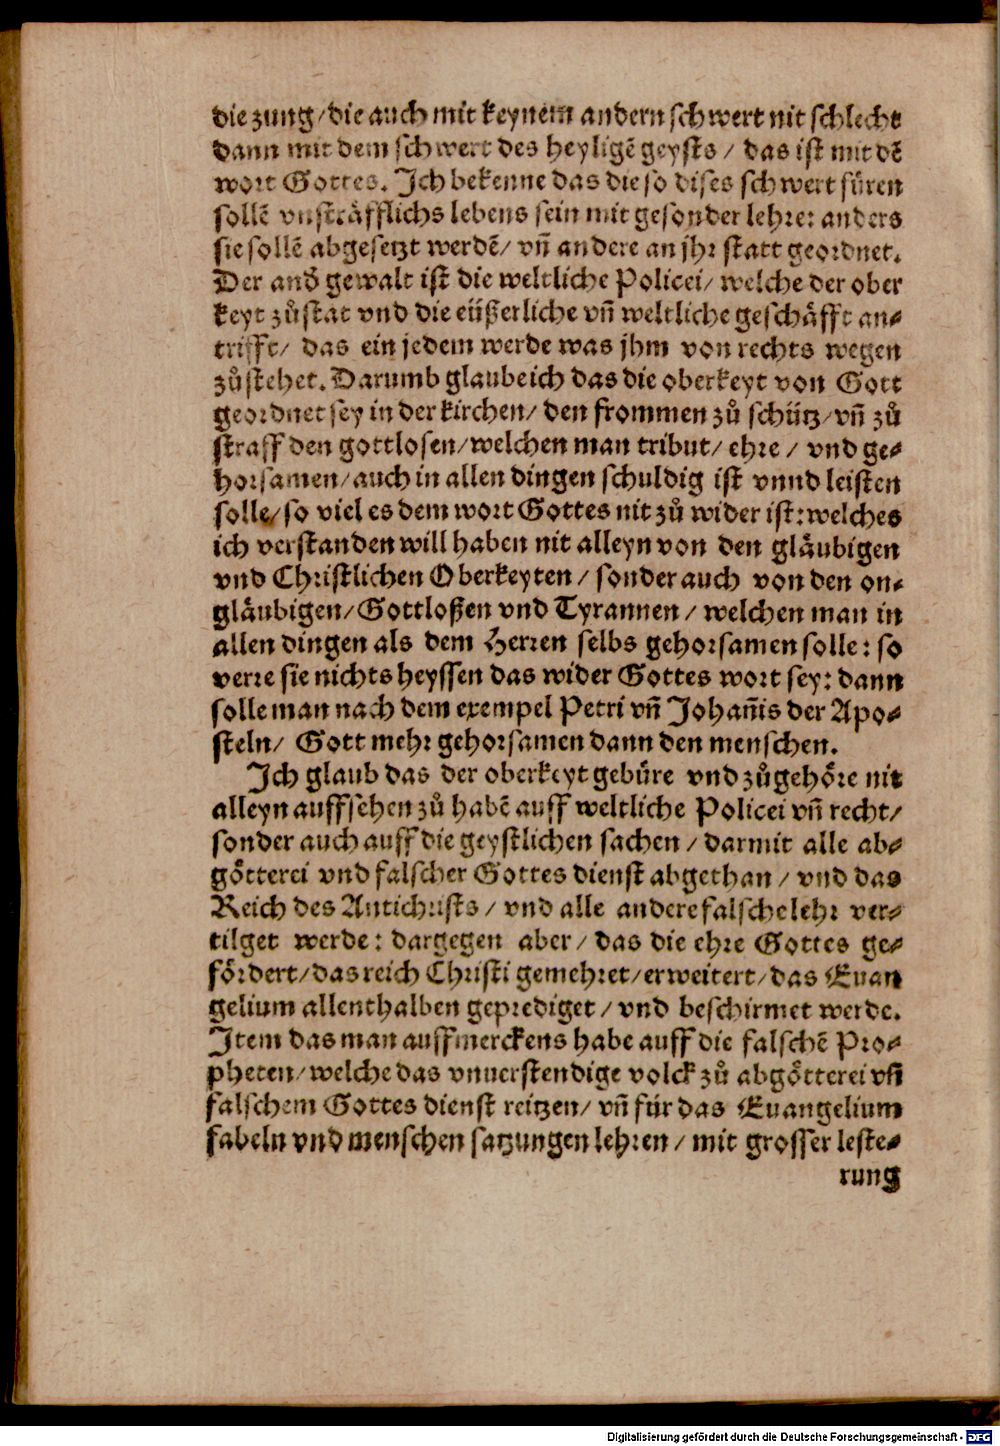 die zung / die auch mit keynem andern schwert nit schlecht
dann mit dem schwert des heyligẽ geysts / das ist mit dẽ
wort Gottes. Ich bekenne das die so dises schwert fuͤren
sollẽ vnstraͤfflichs lebens sein mit gesonder lehre: anders
sie sollẽ abgesetzt werdẽ / vñ andere an jhr statt geordnet.
Der and̃ gewalt ist die weltliche Policei / welche der ober
keyt zůstat vnd die eüßerliche vñ weltliche geschaͤfft an⸗
trifft / das ein jedem werde was jhm von rechts wegen
zůstehet. Darumb glaube ich das die oberkeyt von Gott
geordnet sey in der kirchen / den frommen zů schütz / vñ zů
straff den gottlosen / welchen man tribut / ehre / vnd ge⸗
horsamen / auch in allen dingen schuldig ist vnnd leisten
solle / so viel es dem wort Gottes nit zů wider ist: welches
ich verstanden will haben nit alleyn von den glaͤubigen
vnd Christlichen Oberkeyten / sonder auch von den on⸗
glaͤubigen / Gottloßen vnd Tyrannen / welchen man in
allen dingen als dem Herren selbs gehorsamen solle: so
verre sie nichts heyssen das wider Gottes wort sey: dann
solle man nach dem exempel Petri vñ Johañis der Apo⸗
steln / Gott mehr gehorsamen dann den menschen.
Ich glaub das der oberkeyt gebüre vnd zůgehoͤre nit
alleyn auffsehen zů habẽ auff weltliche Policei vñ recht /
sonder auch auff die geystlichen sachen / darmit alle ab⸗
goͤtterei vnd falscher Gottes dienst abgethan / vnd das
Reich des Antichrists / vnd alle andere falsche lehr ver⸗
tilget werde: dargegen aber / das die ehre Gottes ge⸗
foͤrdert / das reich Christi gemehret / erweitert / das Euan
gelium allenthalben geprediget / vnd beschirmet werde.
Item das man auffmerckens habe auff die falschẽ Pro⸗
pheten / welche das vnuerstendige volck zů abgoͤtterei vñ
falschem Gottes dienst reitzen / vñ für das Euangelium
fabeln vnd menschen satzungen lehren / mit grosser leste⸗
rung
Digitalisierung gefördert durch die Deutsche Forschungsgemeinschaft - DFG